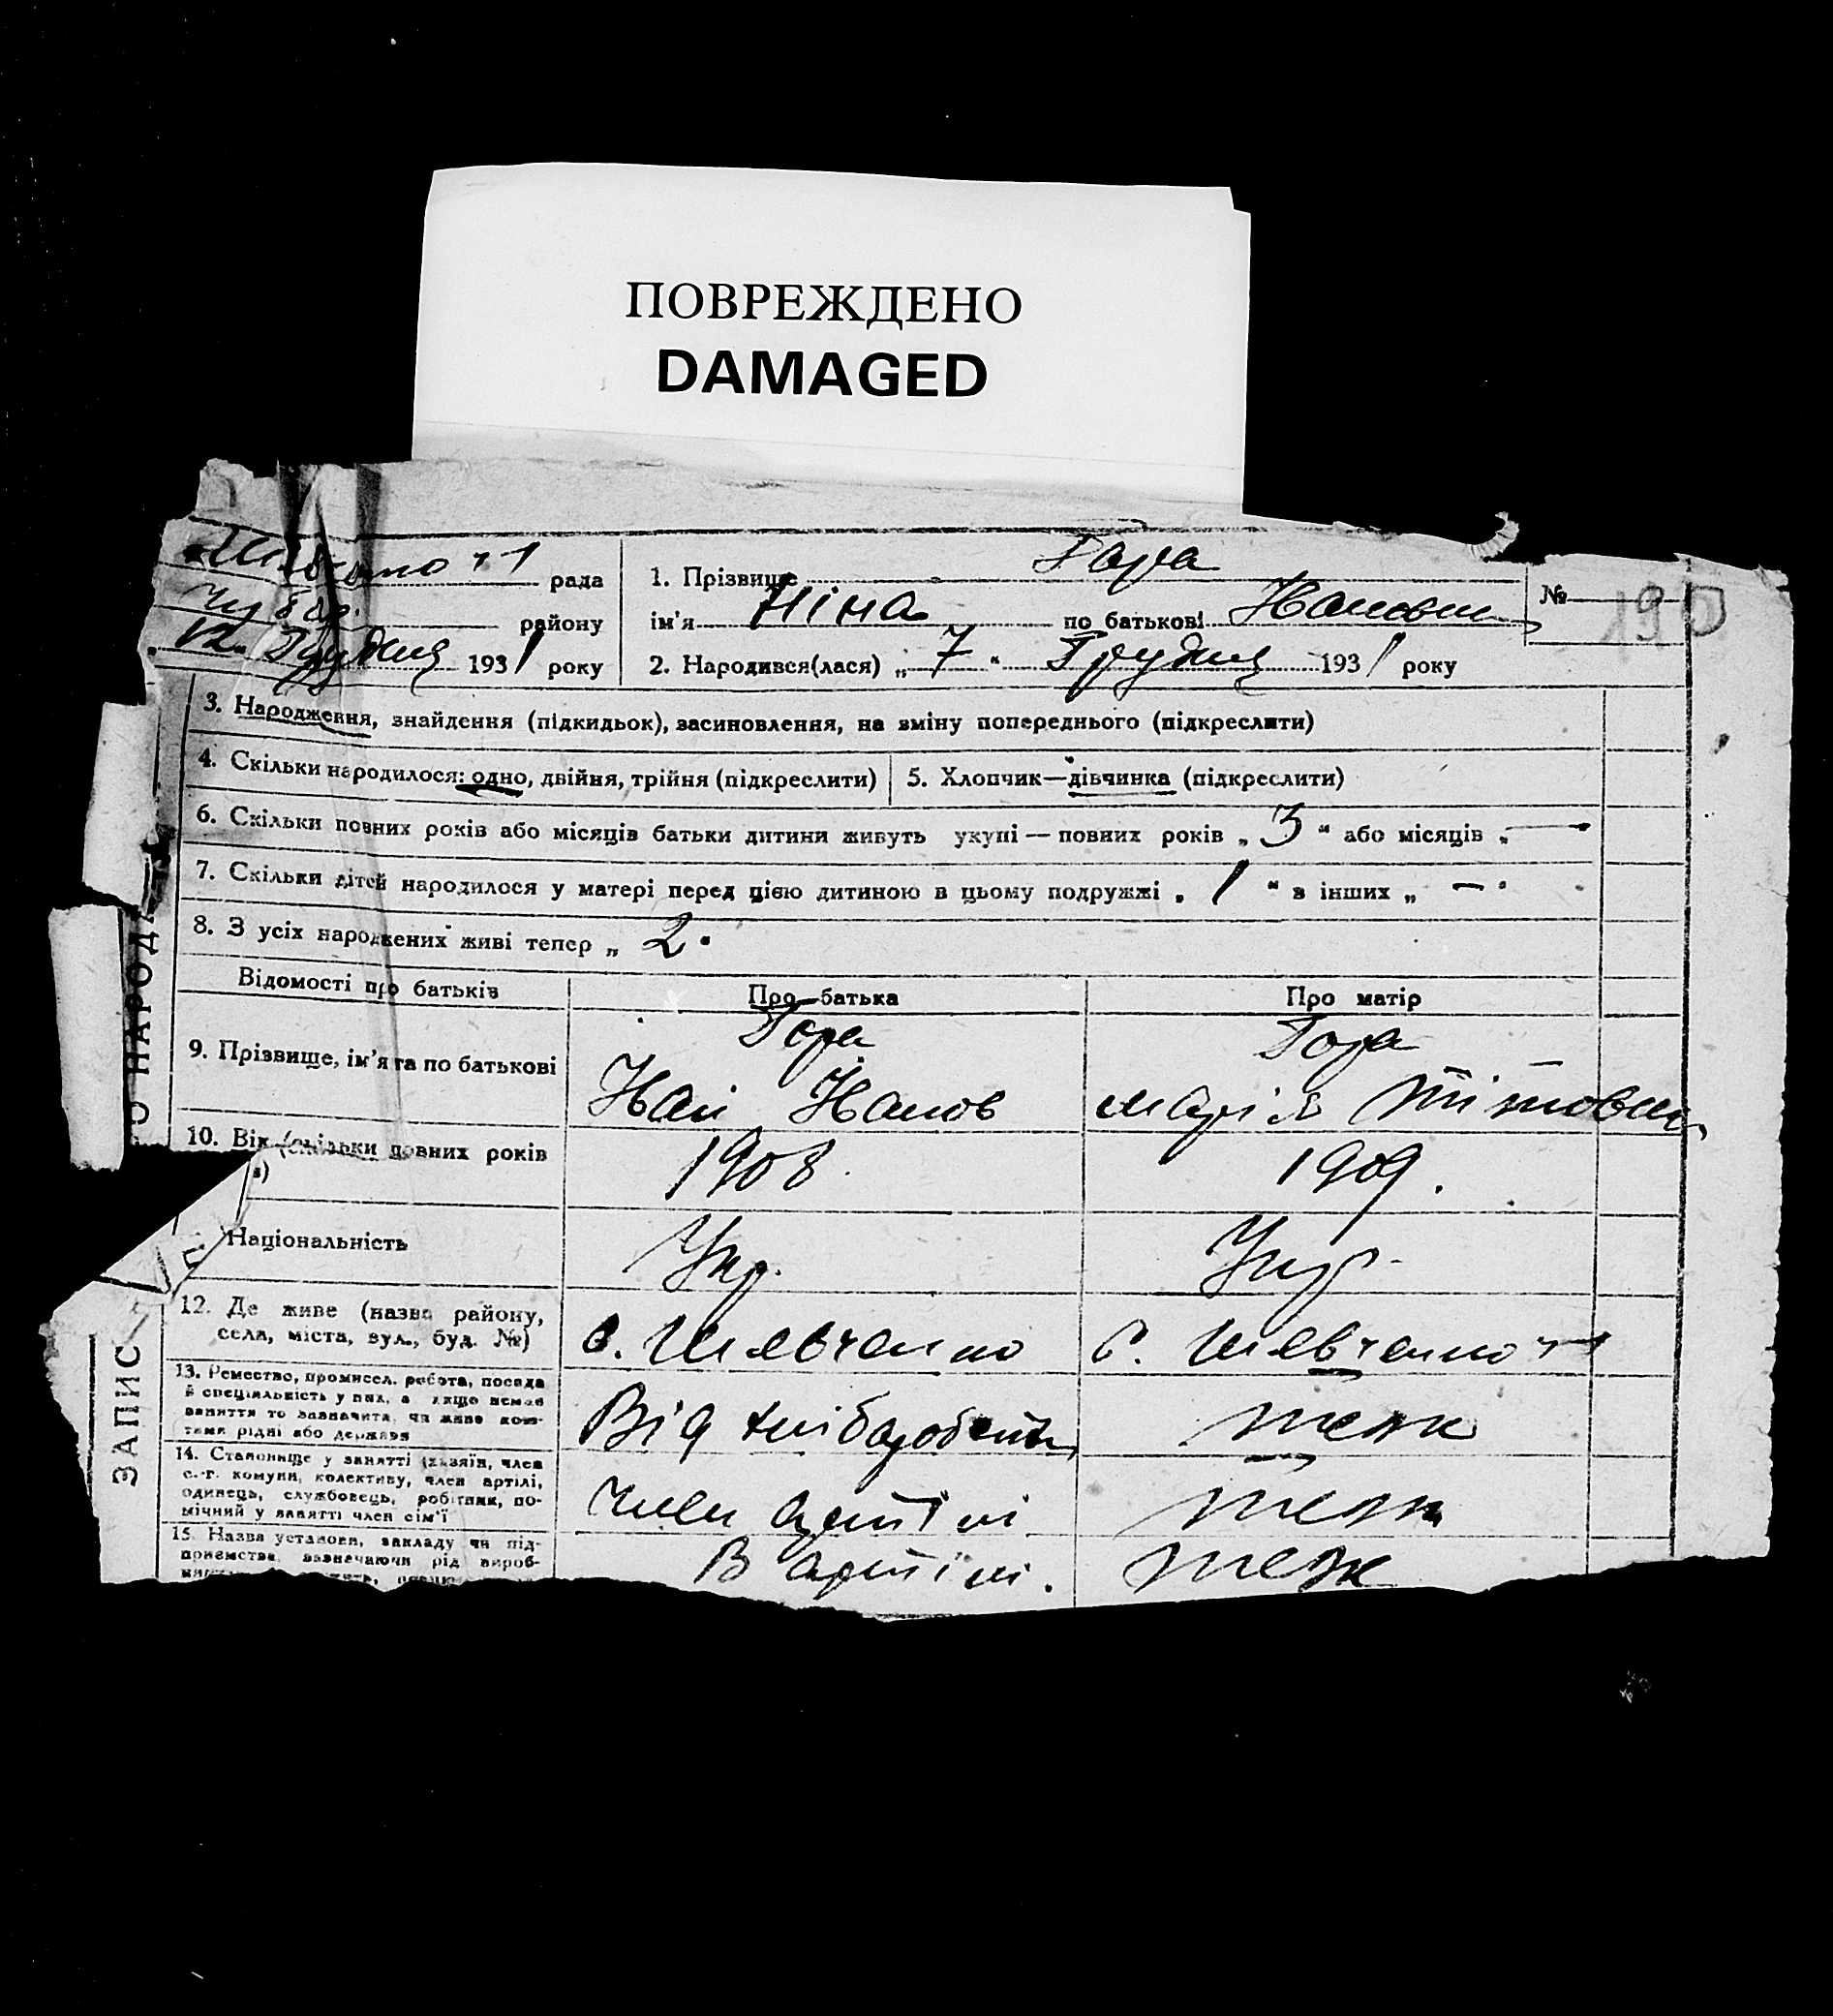 ПОВРЕЖДЕНО
DAMAGED
рада
району
12. Грудня 1931 року
1. Прізвище Гора
ім'я Ніна по батькові
2. Народився(лася) „ 7 “ Грудня 1931 року
№ 190
3. Народження, знайдення (підкидьок), засиновлення, на зміну попереднього (підкреслити)
4. Скільки народилося: одно, двійня, трійня (підкреслити)
5. Хлопчик—дівчинка (підкреслити)
6. Скільки повних років або місяців батьки дитини живуть укупі — повних років „ 3 “ або місяців „ —
7. Скільки дітей народилося у матері перед цією дитиною в цьому подружжі „ 1 “ в інших „ —
8. З усіх народжених живі тепер „ 2
Відомості про батьків
Про батька
Про матір
9. Прізвище, ім'я та по батькові
Гора
Іван Іванов
Гора
Марія
10. Вік (скільки повних років
1908
1909.
Національність
Укр.
Укр.
12. Де живе (назва району,
села, міста, вул., буд. №)
с. Шевченко
с. Шевченко ч 1
13. Ремество, промисел, робота, посада
й спеціяльність у них, а якщо немає
заняття то зазначити, чи живе кош-
тами рідні або держави
Від хліборобства
теж
14. Становище у занятті (хазяїн, член
с.-г. комуни, колективу, член артілі,
одинець, службовець, робітник, по-
мічний у занятті член сім'ї
член артілі
теж
15. Назва установи, закладу чи під-
приємства, зазначаючи рід вироб-
В артілі.
теж
ЗАПИС
О НАРОД